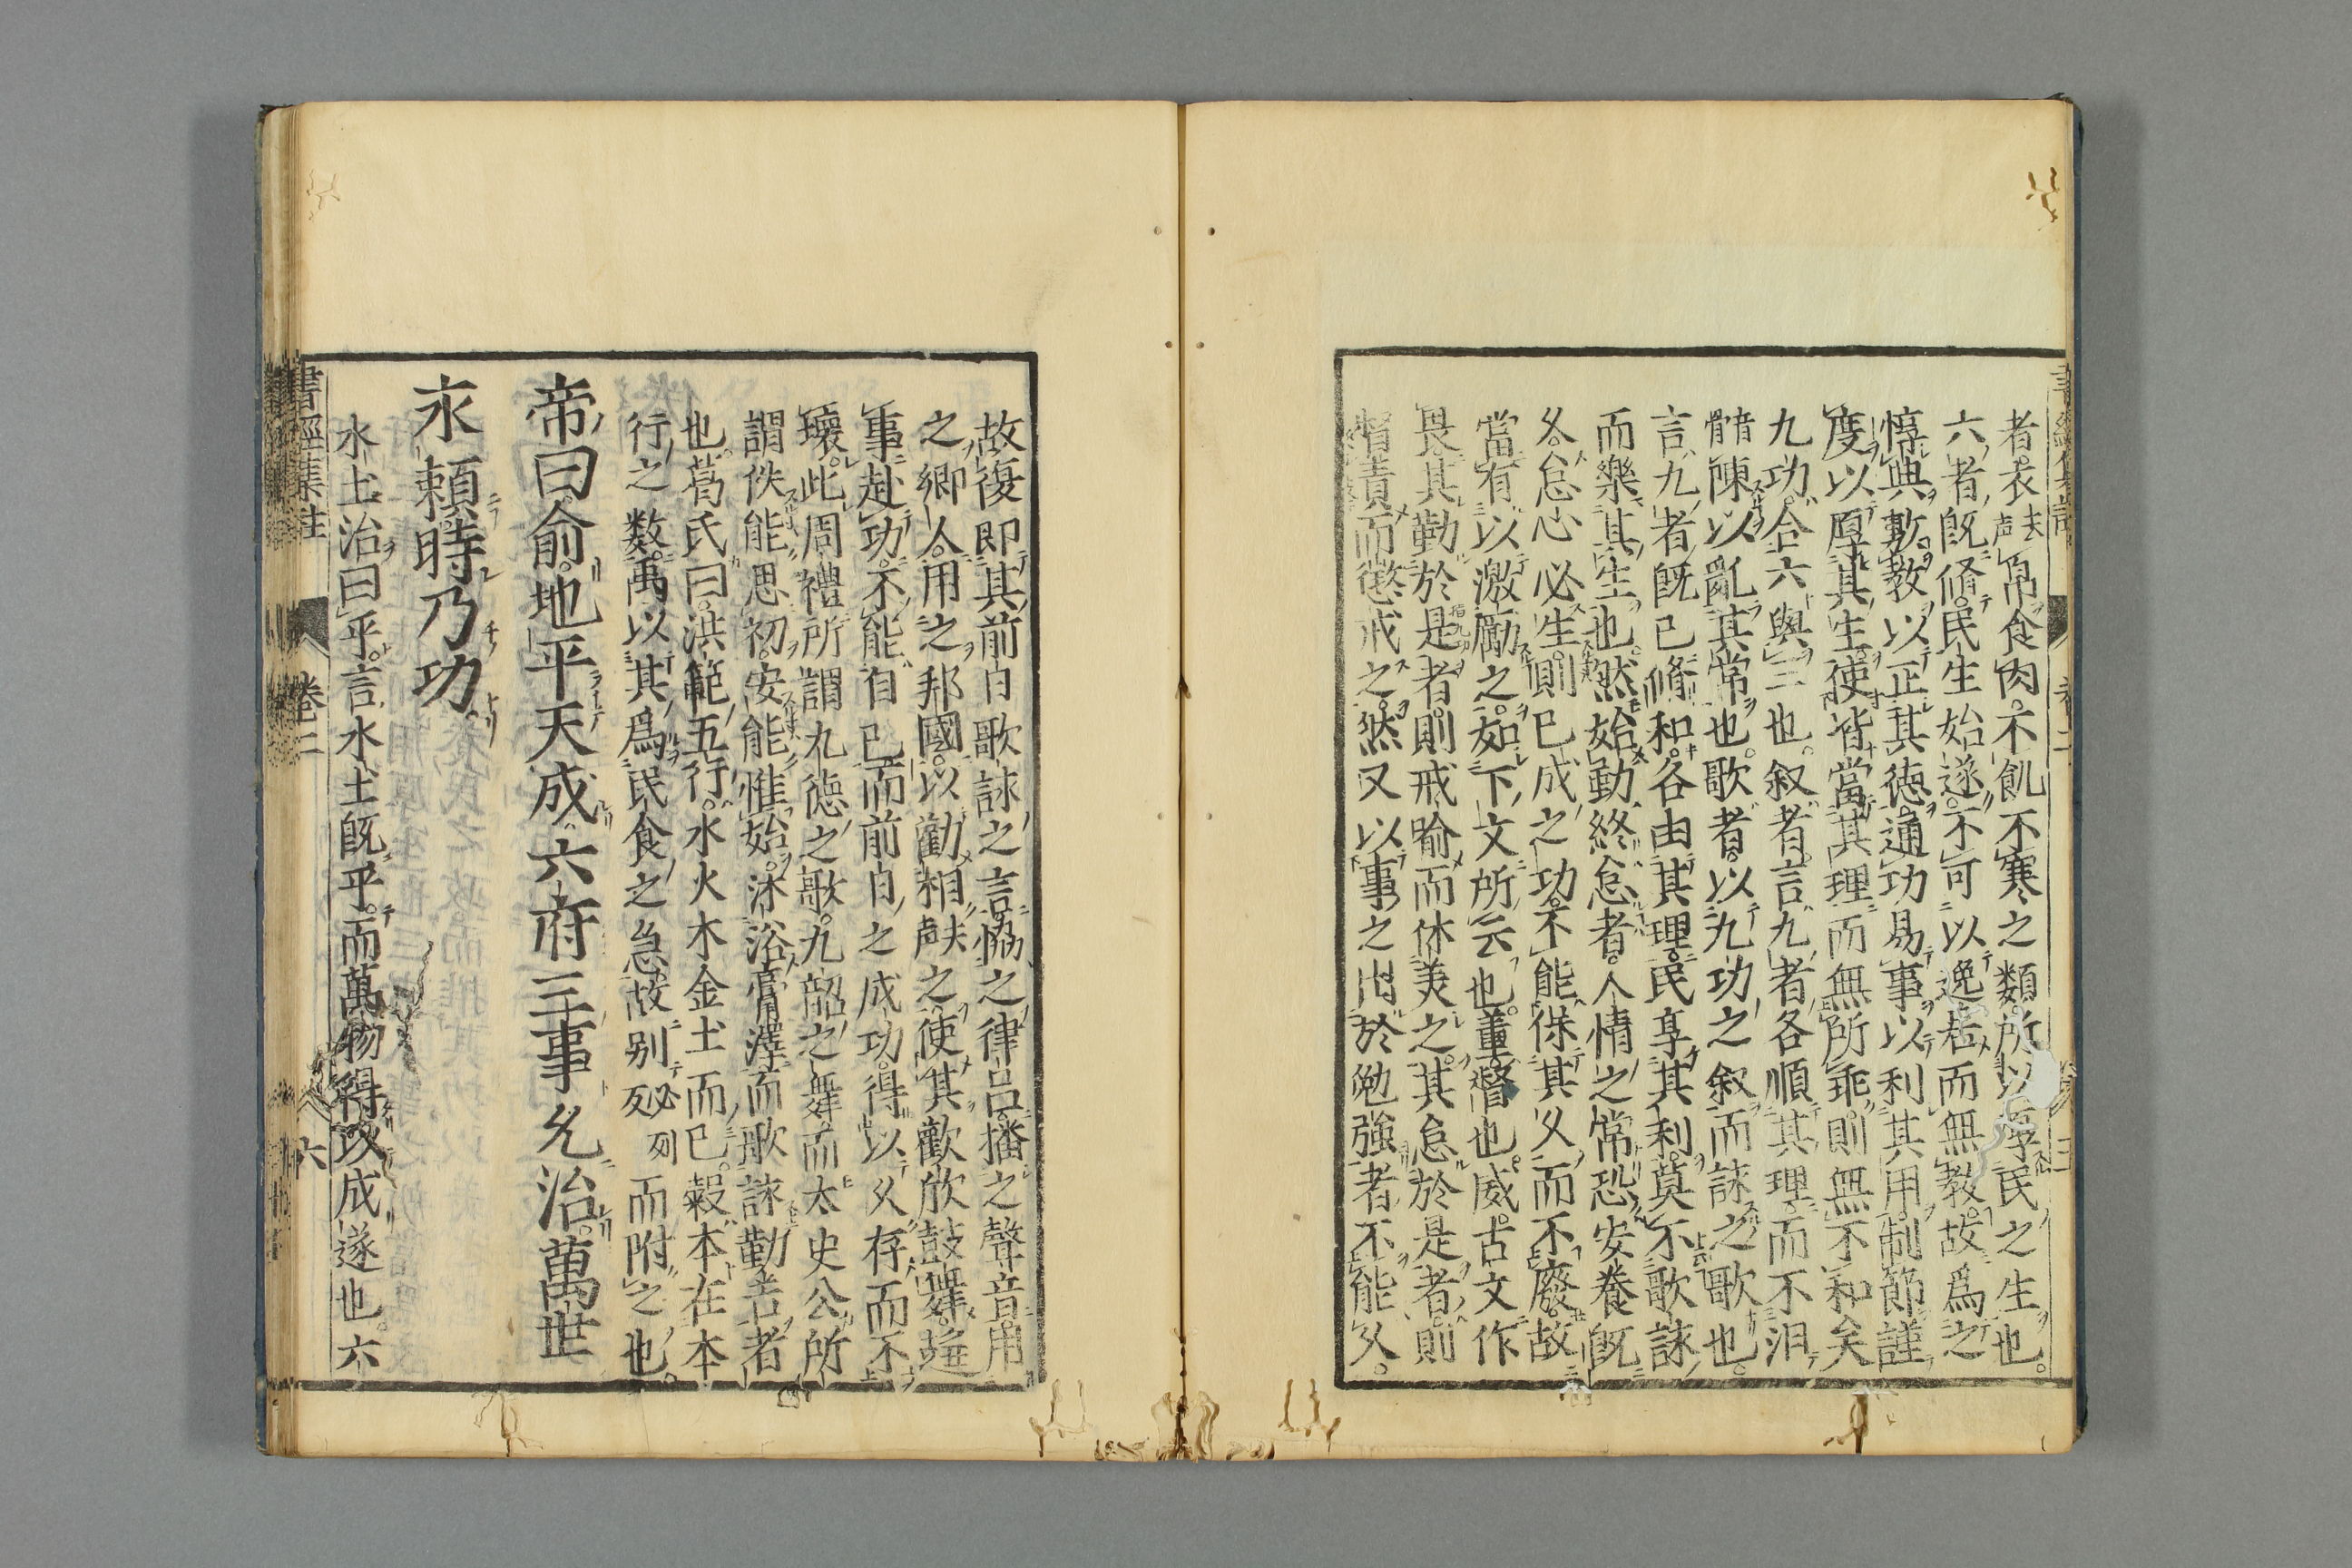 者衣去声帛食肉不飢不寒之類所以厚民之生也
六者既脩民生始遂不可以逸居而無教故爲之
惇典敷教以正其德通功易事以利其用制節謹
度以厚其生使皆當其理而無所乖則無不和矣
九功合六與三也叙者言九者各順其理而不汨
陳以亂其常也歌者以九功之叙而詠之歌也
言九者既已脩和各由其理民享其利莫不歌詠
而樂其生也然始勤終怠者人情之常恐安養既
久怠心必生則已成之功不能保其久而不廢故
當有以激勵之如下文所云也董督也威古文作
畏其勤於是者則戒喻而休美之其怠於是者則
督責而懲戒之然又以事之出於勉強者不能久
故復即其前日歌詠之言協之律呂播之聲音用
之鄉人用之邦國以勸相去声之使其歡欣鼓舞趨
事赴功不能自已而前日之成功得以久存而不
壞此周禮所謂九德之歌九韶之舞而太史公所
謂佚能思初安能惟始沐浴膏澤而歌詠勤苦者
也葛氏曰洪範五行水火木金土而已穀本在木
行之數禹以其爲民食之急故别必列列而附之也
帝曰俞地平天成六府三事允治萬世
永賴時乃功
水土治曰平言水土既平而萬物得以成遂也六
書經集註 卷二 六